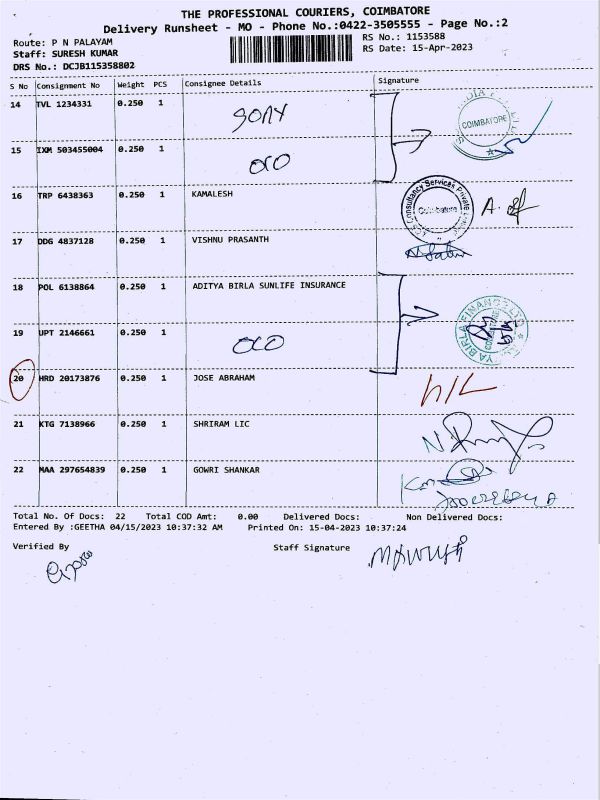 THE PROFESSIONAL COURIERS, COIMBATORE
Delivery Runsheet - MO - Phone No.:0422-3505555 - Page No.:2
Route: P N PALAYAM RS No.: 1153588
Staff: SURESH KUMAR RS Date: 15-Apr-2023
DRS No.: DCJB115358802
S No Consignment No Weight PCS Consignee Details Signature
14 TVL 1234331 0.250 1 SONY
COIMBATORE
15 IXM 503455004 0.250 1
16 TRP 6438363 0.250 1 KAMALESH
Consultancy Services Private
Coimbatore
17 DDG 4837128 0.250 1 VISHNU PRASANTH
18 POL 6138864 0.250 1 ADITYA BIRLA SUNLIFE INSURANCE
BIRLA FINANCE LTD
19 UPT 2146661 0.250 1
20 HRD 20173876 0.250 1 JOSE ABRAHAM
21 KTG 7138966 0.250 1 SHRIRAM LIC
22 MAA 297654839 0.250 1 GOWRI SHANKAR
Total No. Of Docs: 22 Total COD Amt: 0.00 Delivered Docs: Non Delivered Docs:
Entered By :GEETHA 04/15/2023 10:37:32 AM Printed On: 15-04-2023 10:37:24
Verified By Staff Signature